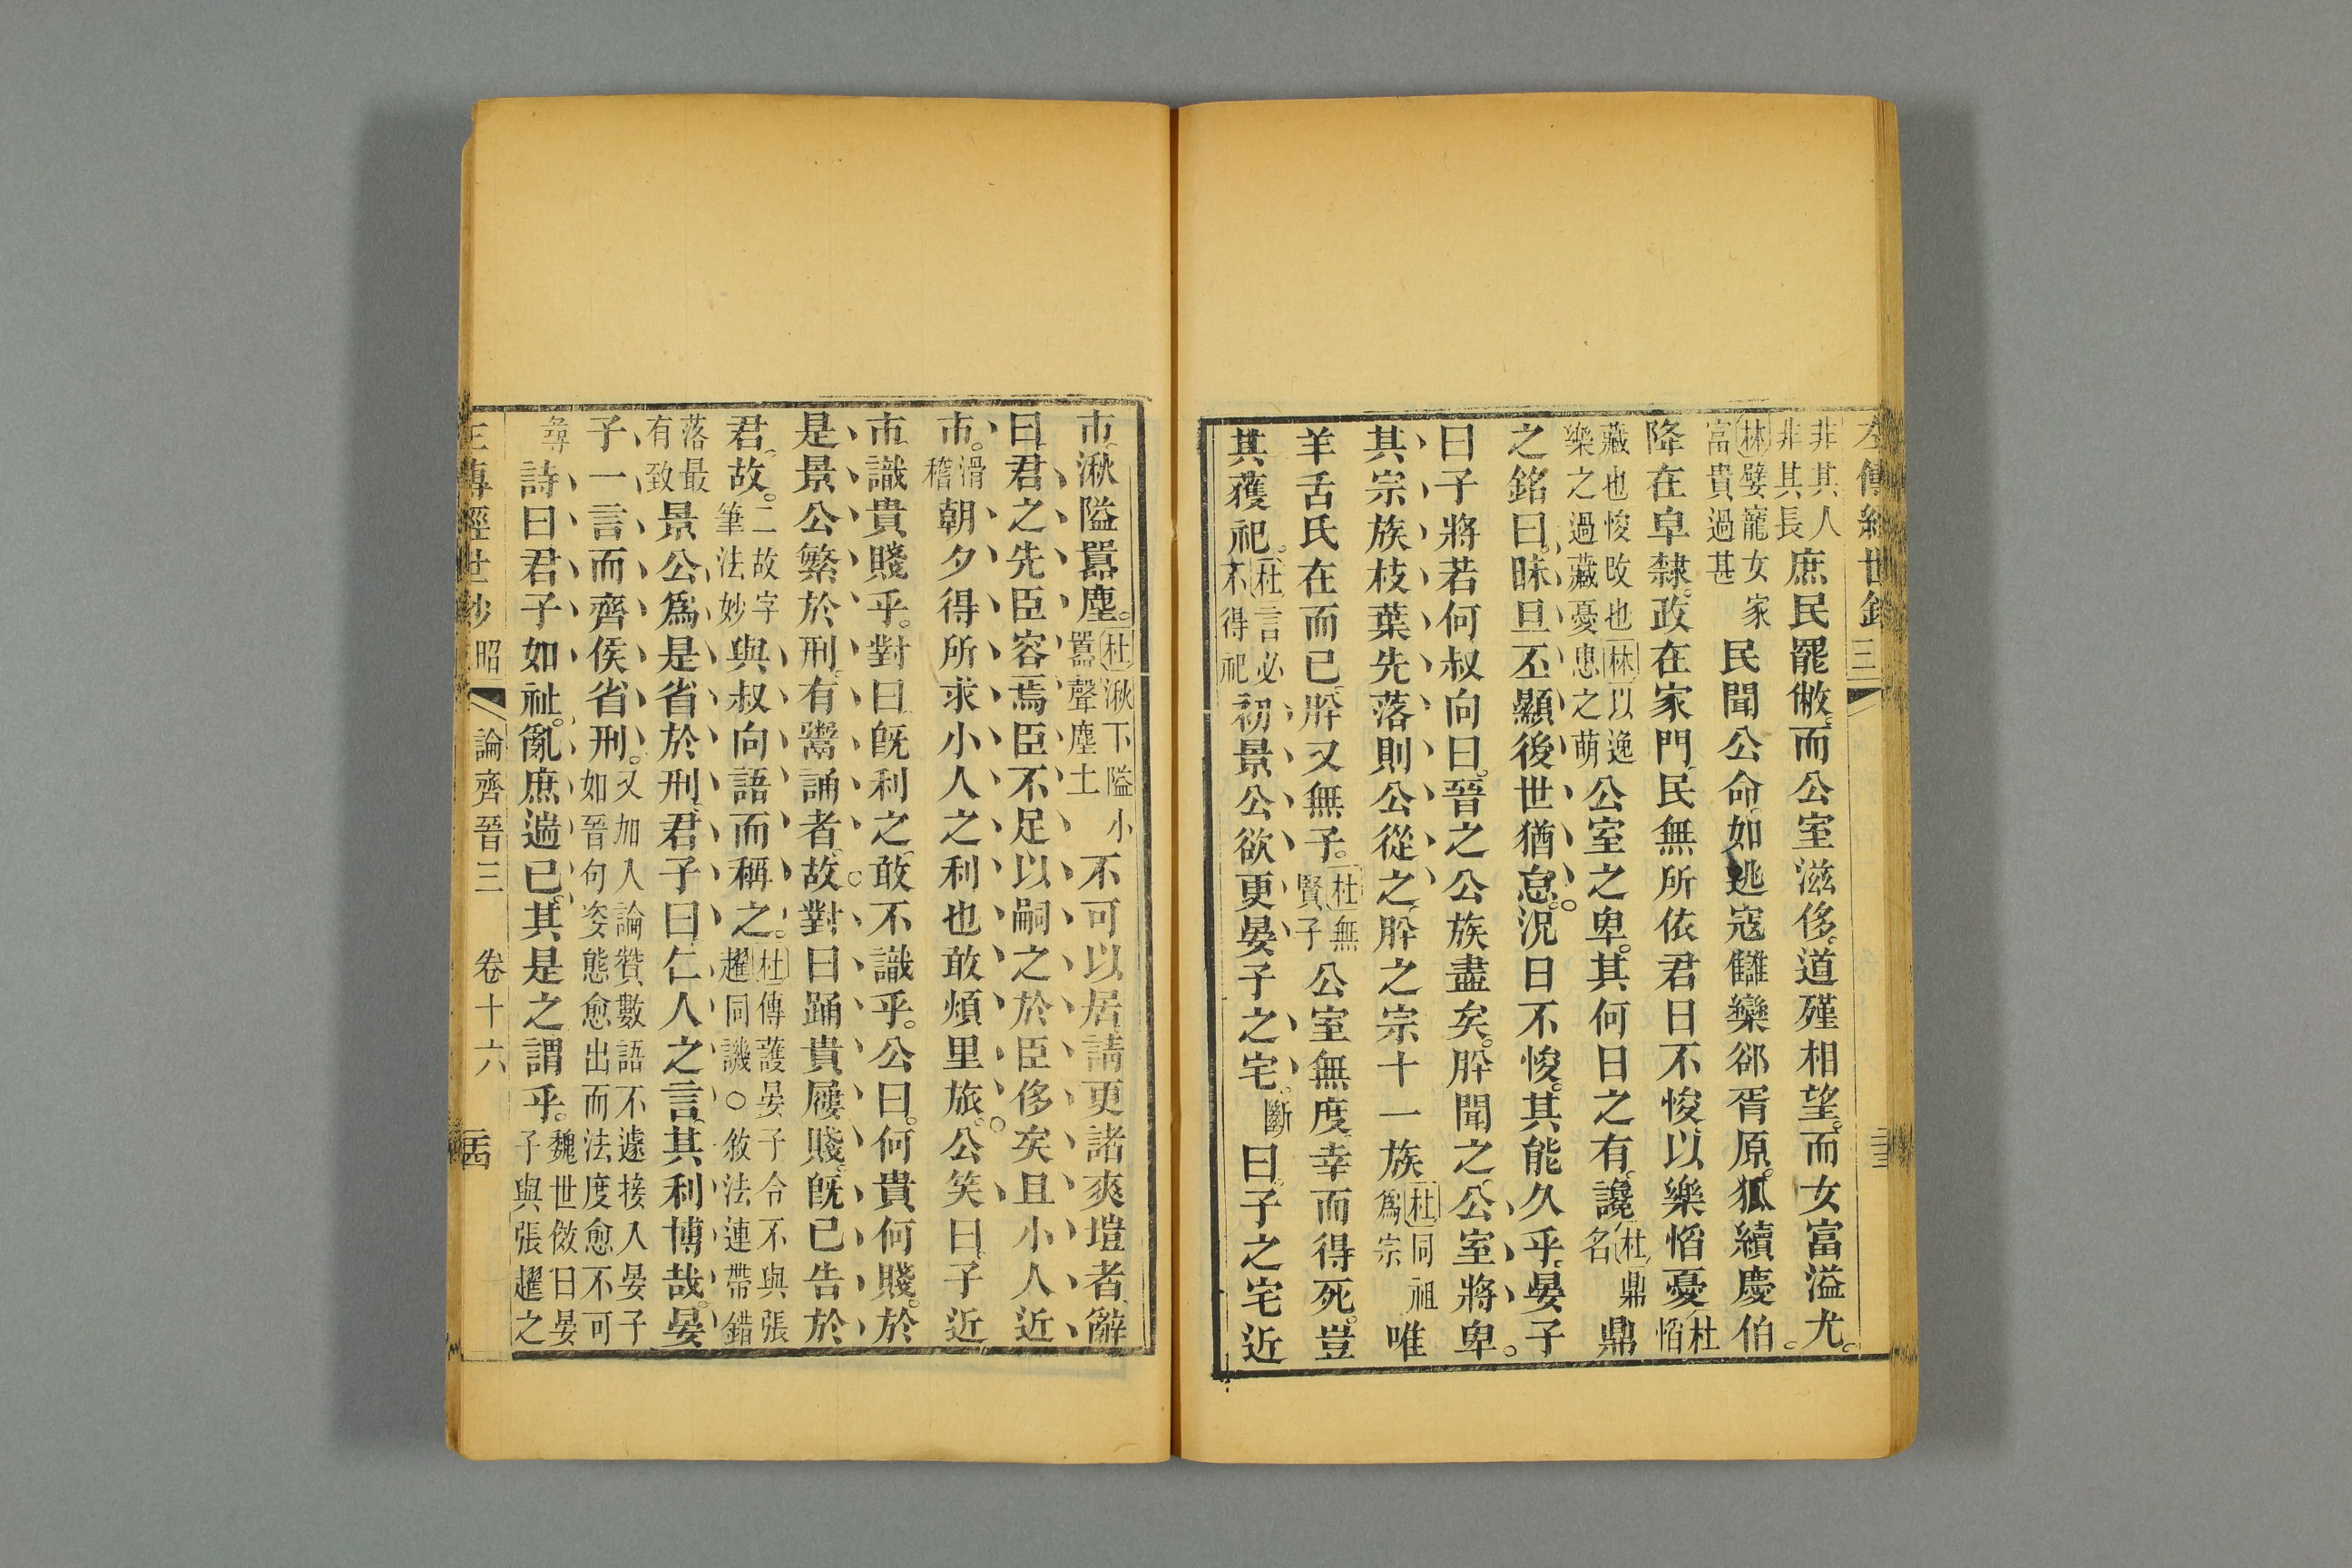 左傳經世鈔 三
非其人非其長庶民罷敝而公室滋侈道殣相望而女富溢尤
林嬖寵女家富貴過甚民聞公命如逃寇讎欒郤胥原狐續慶伯
降在皁隸政在家門民無所依君日不悛以樂慆憂杜慆
藏也悛改也林以逸樂之過藏憂患之萌公室之卑其何日之有讒杜鼎名鼎
之銘曰昧旦丕顯後世猶怠況日不悛其能久乎晏子
曰子將若何叔向曰晉之公族盡矣肸聞之公室將卑
其宗族枝葉先落則公從之肸之宗十一族杜同祖爲宗唯
羊舌氏在而已肸又無子杜無賢子公室無度幸而得死豈
其獲祀杜言必不得祀初景公欲更晏子之宅斷曰子之宅近
市湫隘囂塵杜湫下隘小囂聲塵土不可以居請更諸爽塏者辭
曰君之先臣容焉臣不足以嗣之於臣侈矣且小人近
市滑稽朝夕得所求小人之利也敢煩里旅公笑曰子近
市識貴賤乎對曰旣利之敢不識乎公曰何貴何賤於
是景公繁於刑有鬻誦者故對曰踊貴屨賤旣已告於
君故二故字筆法妙與叔向語而稱之杜傳護晏子合不與張趯同譏○敘法連帶錯
落最有致景公爲是省於刑君子曰仁人之言其利博哉晏
子一言而齊侯省刑又加入論贊數語不遽接入晏子如晉句姿態愈出而法度愈不可
尋詩曰君子如祉亂庶遄已其是之謂乎魏世傚曰晏子與張趯之
左傳經世鈔 昭 論齊晉三 卷十六 二十四